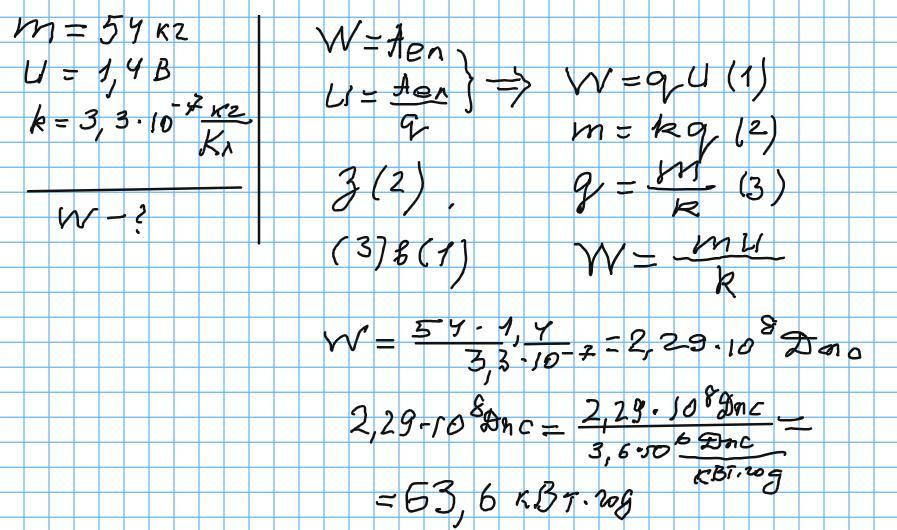 m = 54 кг
U = 1,4 В
k = 3,3 · 10⁻⁷ кг/Кл
W - ?
W = Aел
U = Aел/q
} ⇒ W = qU (1)
m = kq (2)
З (2) .
q = m/k (3)
(3) в (1)
W = mU/k
W = 54 · 1,4 / 3,3 · 10⁻⁷ = 2,29 · 10⁸ Дж
2,29 · 10⁸ Дж = 2,29 · 10⁸ Дж / 3,6 · 10⁶ Дж/кВт·год =
= 63,6 кВт·год